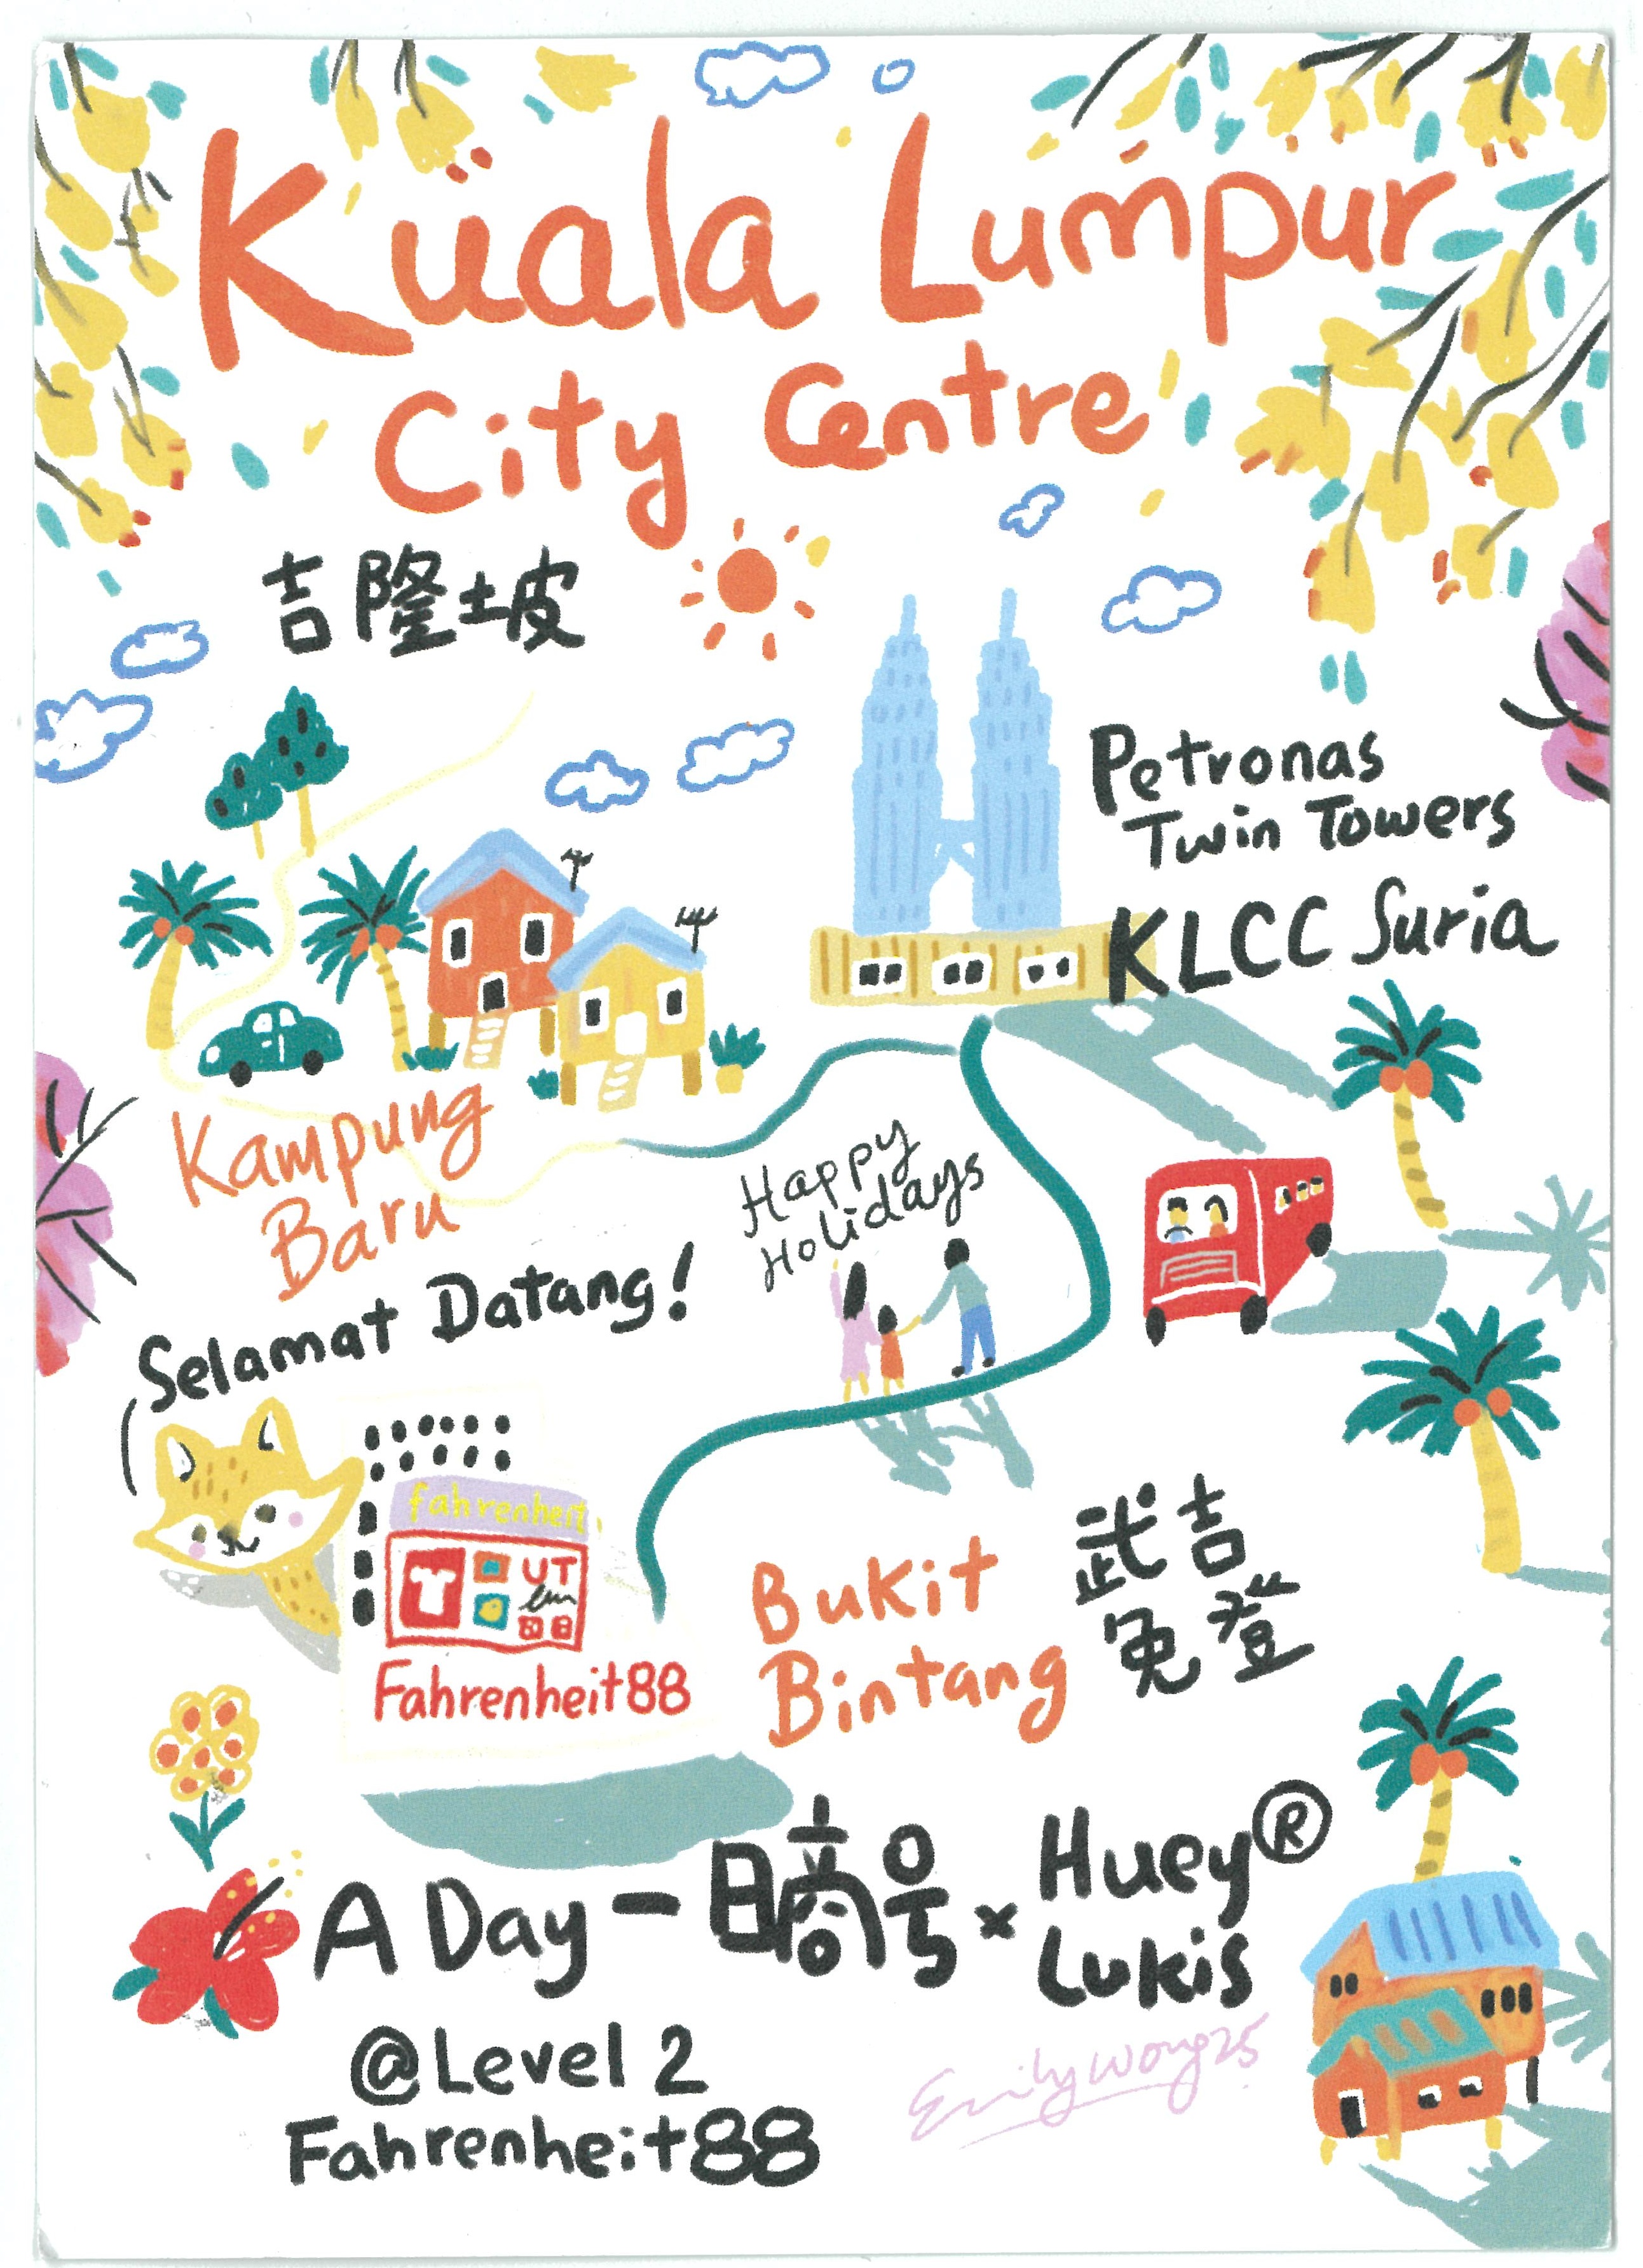 Kuala Lumpur
City Centre
吉隆坡
Petronas
Twin Towers
KLCC Suria
Kampung
Baru
Happy
Holidays
Selamat Datang!
fahrenheit
UT
Fahrenheit88
Bukit
Bintang
武吉
免登
A Day一暠号 × Huey®
Lukis
@Level 2
Fahrenheit88
Emily Wong 25